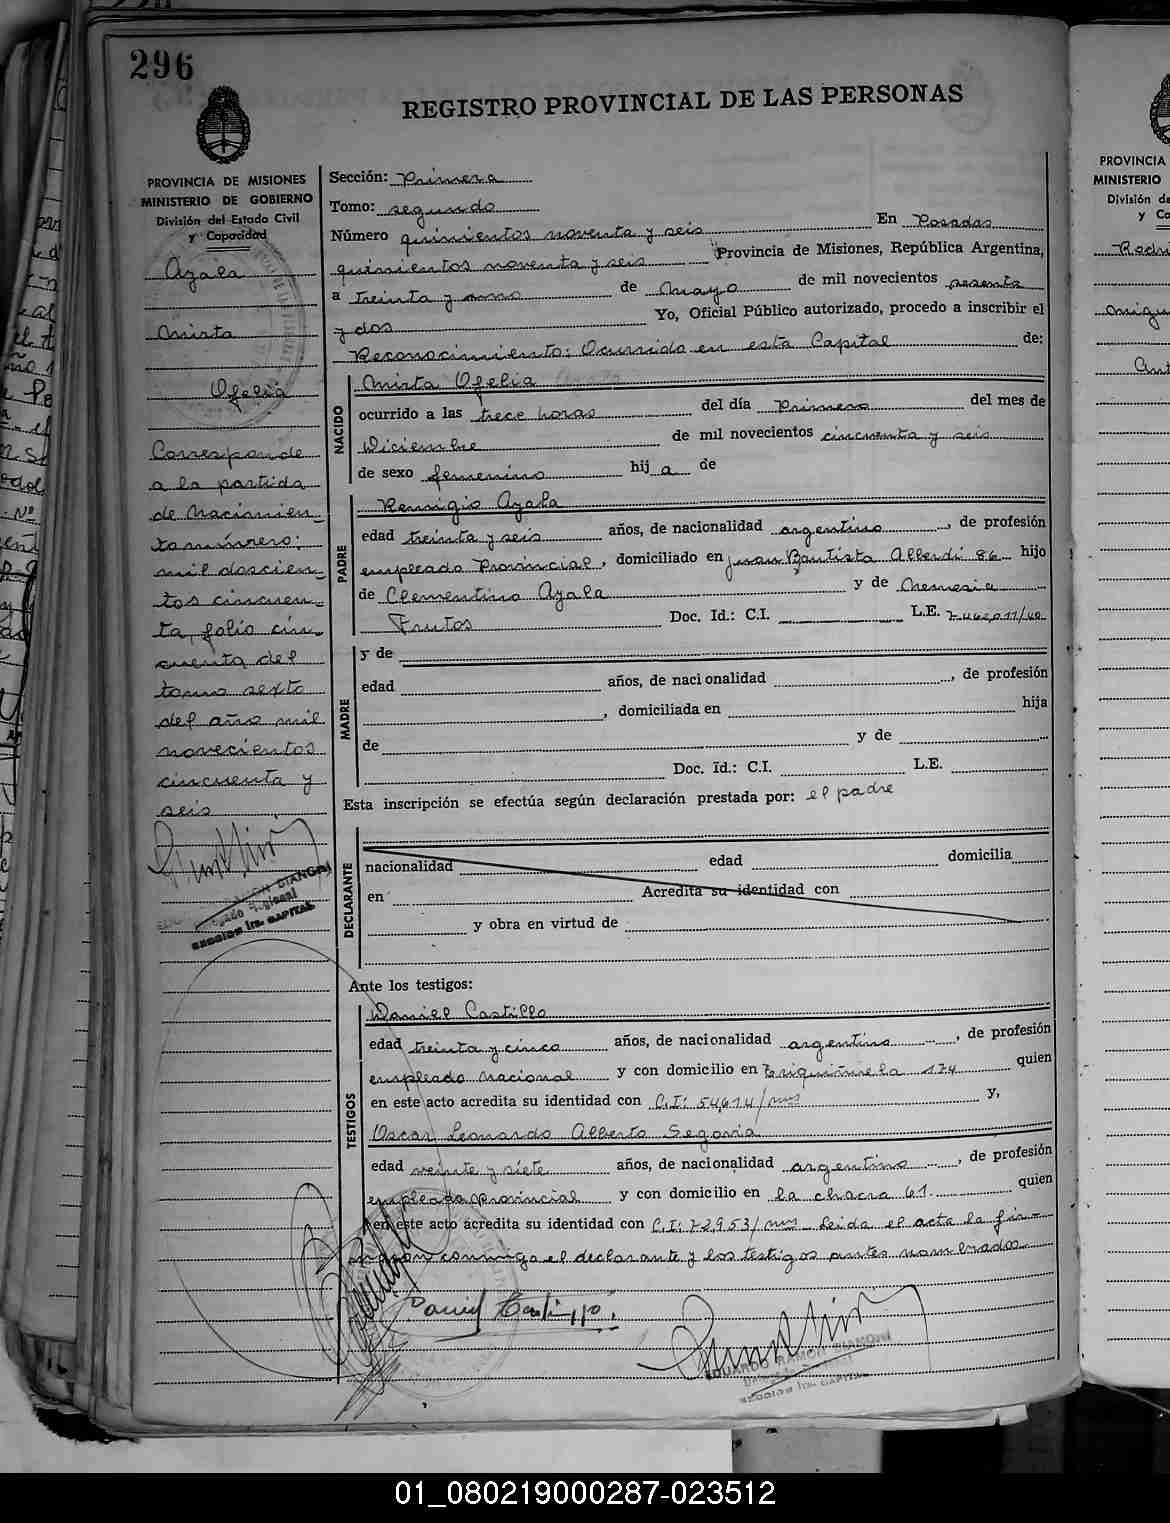 296
REGISTRO PROVINCIAL DE LAS PERSONAS
PROVINCIA DE MISIONES
MINISTERIO DE GOBIERNO
División del Estado Civil
y Capacidad
Ayala
Mirta
Ofelia
Corresponde
a la partida
de nacimien_
to número:
mil doscien_
tos cincuen_
ta, folio cin_
cuenta del
tomo sexto
del año mil
novecientos
cincuenta y
seis
SECCION 1ra. CAPITAL
Sección: Primera
Tomo: segundo
Número quinientos noventa y seis En Posadas
quinientos noventa y seis Provincia de Misiones, República Argentina,
a treinta y uno de Mayo de mil novecientos sesenta
y dos Yo, Oficial Público autorizado, procedo a inscribir el
Reconocimiento: Ocurrido en esta Capital de:
NACIDO
Mirta Ofelia
ocurrido a las trece horas del día Primero del mes de
Diciembre de mil novecientos cincuenta y seis
de sexo femenino hija de
PADRE
Remigio Ayala
edad treinta y seis años, de nacionalidad argentino, de profesión
empleado Provincial, domiciliado en Juan Bautista Alberdi 86 hijo
de Clementino Ayala y de Nemesia
Frutos Doc. Id.: C.I. L.E.
MADRE
y de
edad años, de nacionalidad , de profesión
, domiciliada en hija
de y de
Doc. Id.: C.I. L.E.
Esta inscripción se efectúa según declaración prestada por: el padre
DECLARANTE
nacionalidad edad domicilia
en Acredita su identidad con
y obra en virtud de
Ante los testigos:
TESTIGOS
Daniel Castillo
edad treinta y cinco años, de nacionalidad argentino, de profesión
empleado nacional y con domicilio en 174 quien
en este acto acredita su identidad con C.I: 54,614/mns y,
Oscar Leonardo Alberto Segovia
edad veinte y siete años, de nacionalidad argentino, de profesión
empleado provincial y con domicilio en la chacra 61. quien
en este acto acredita su identidad con C.I: 72,953/mns Leida el acta la fir_
maron conmigo el declarante y los testigos antes nombrados
EDUARDO RAMON
SECCION 1ra. CAPITAL
PROVINCIA
MINISTERIO
División de
y Ca
01_080219000287-023512